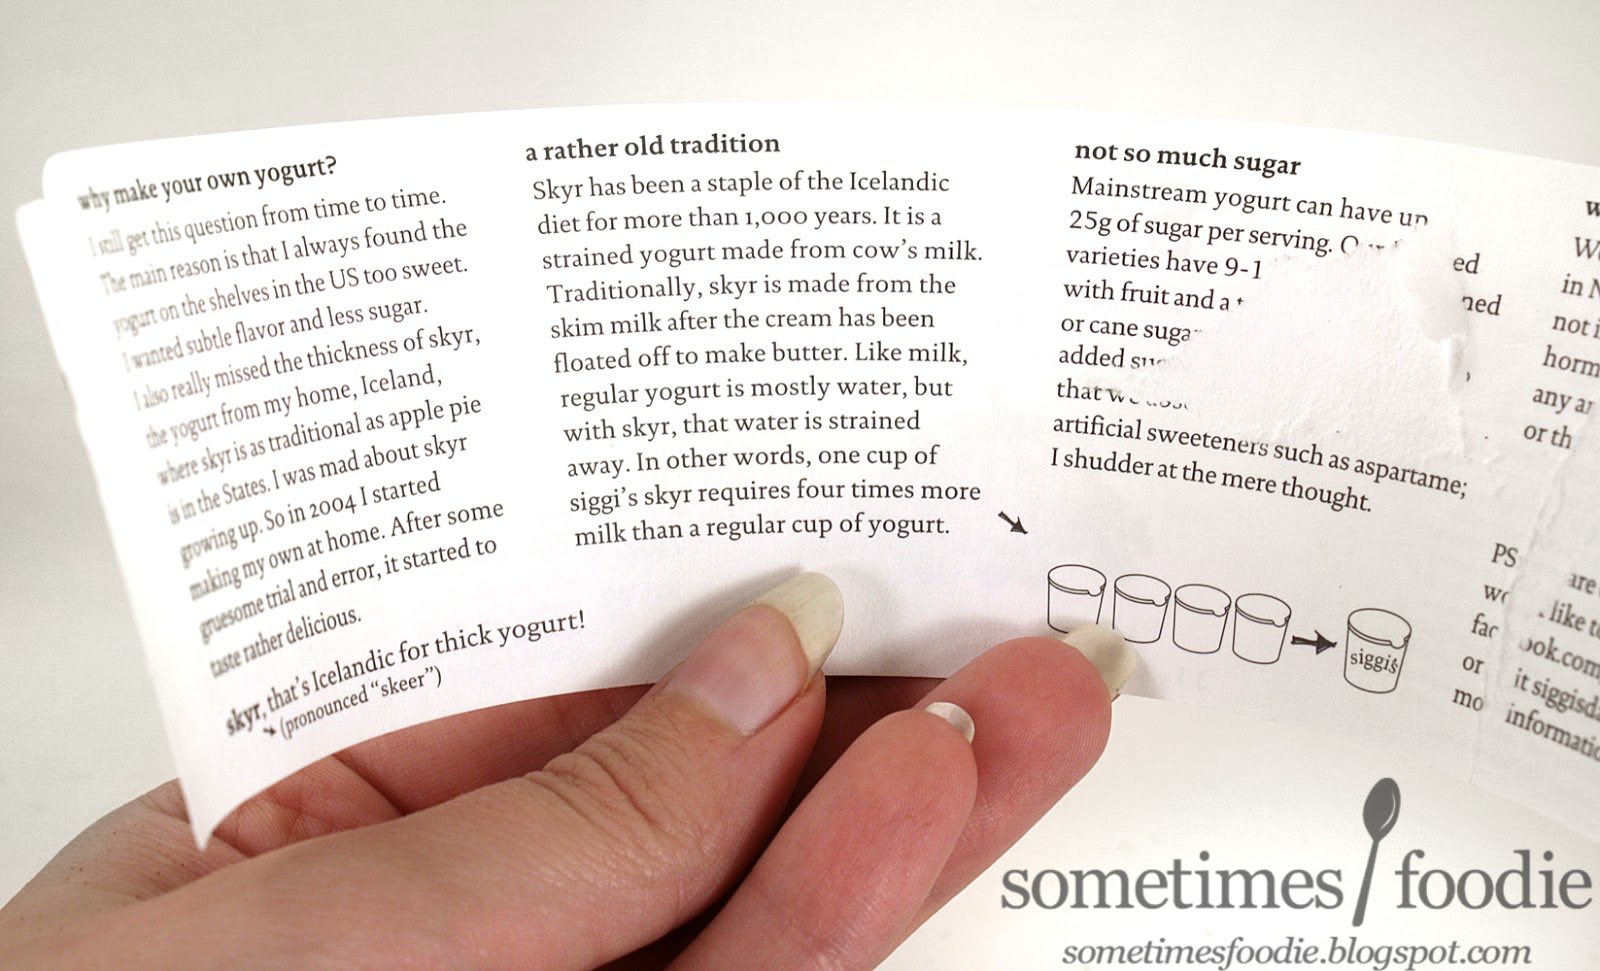 why make your own yogurt?
I still get this question from time to time.
The main reason is that I always found the
yogurt on the shelves in the US too sweet.
I wanted subtle flavor and less sugar.
I also really missed the thickness of skyr,
the yogurt from my home, Iceland,
where skyr is as traditional as apple pie
is in the States. I was mad about skyr
growing up. So in 2004 I started
making my own at home. After some
gruesome trial and error, it started to
taste rather delicious.
skyr, that's Icelandic for thick yogurt!
(pronounced "skeer")
a rather old tradition
Skyr has been a staple of the Icelandic
diet for more than 1,000 years. It is a
strained yogurt made from cow's milk.
Traditionally, skyr is made from the
skim milk after the cream has been
floated off to make butter. Like milk,
regular yogurt is mostly water, but
with skyr, that water is strained
away. In other words, one cup of
siggi's skyr requires four times more
milk than a regular cup of yogurt.
not so much sugar
Mainstream yogurt can have up
25g of sugar per serving.
varieties have 9-1
with fruit and a
or cane
added
that
artificial sweeteners such as aspartame;
I shudder at the mere thought.
siggi's
in
not
any
or
PS are
like
or it
sometimes foodie
sometimesfoodie.blogspot.com